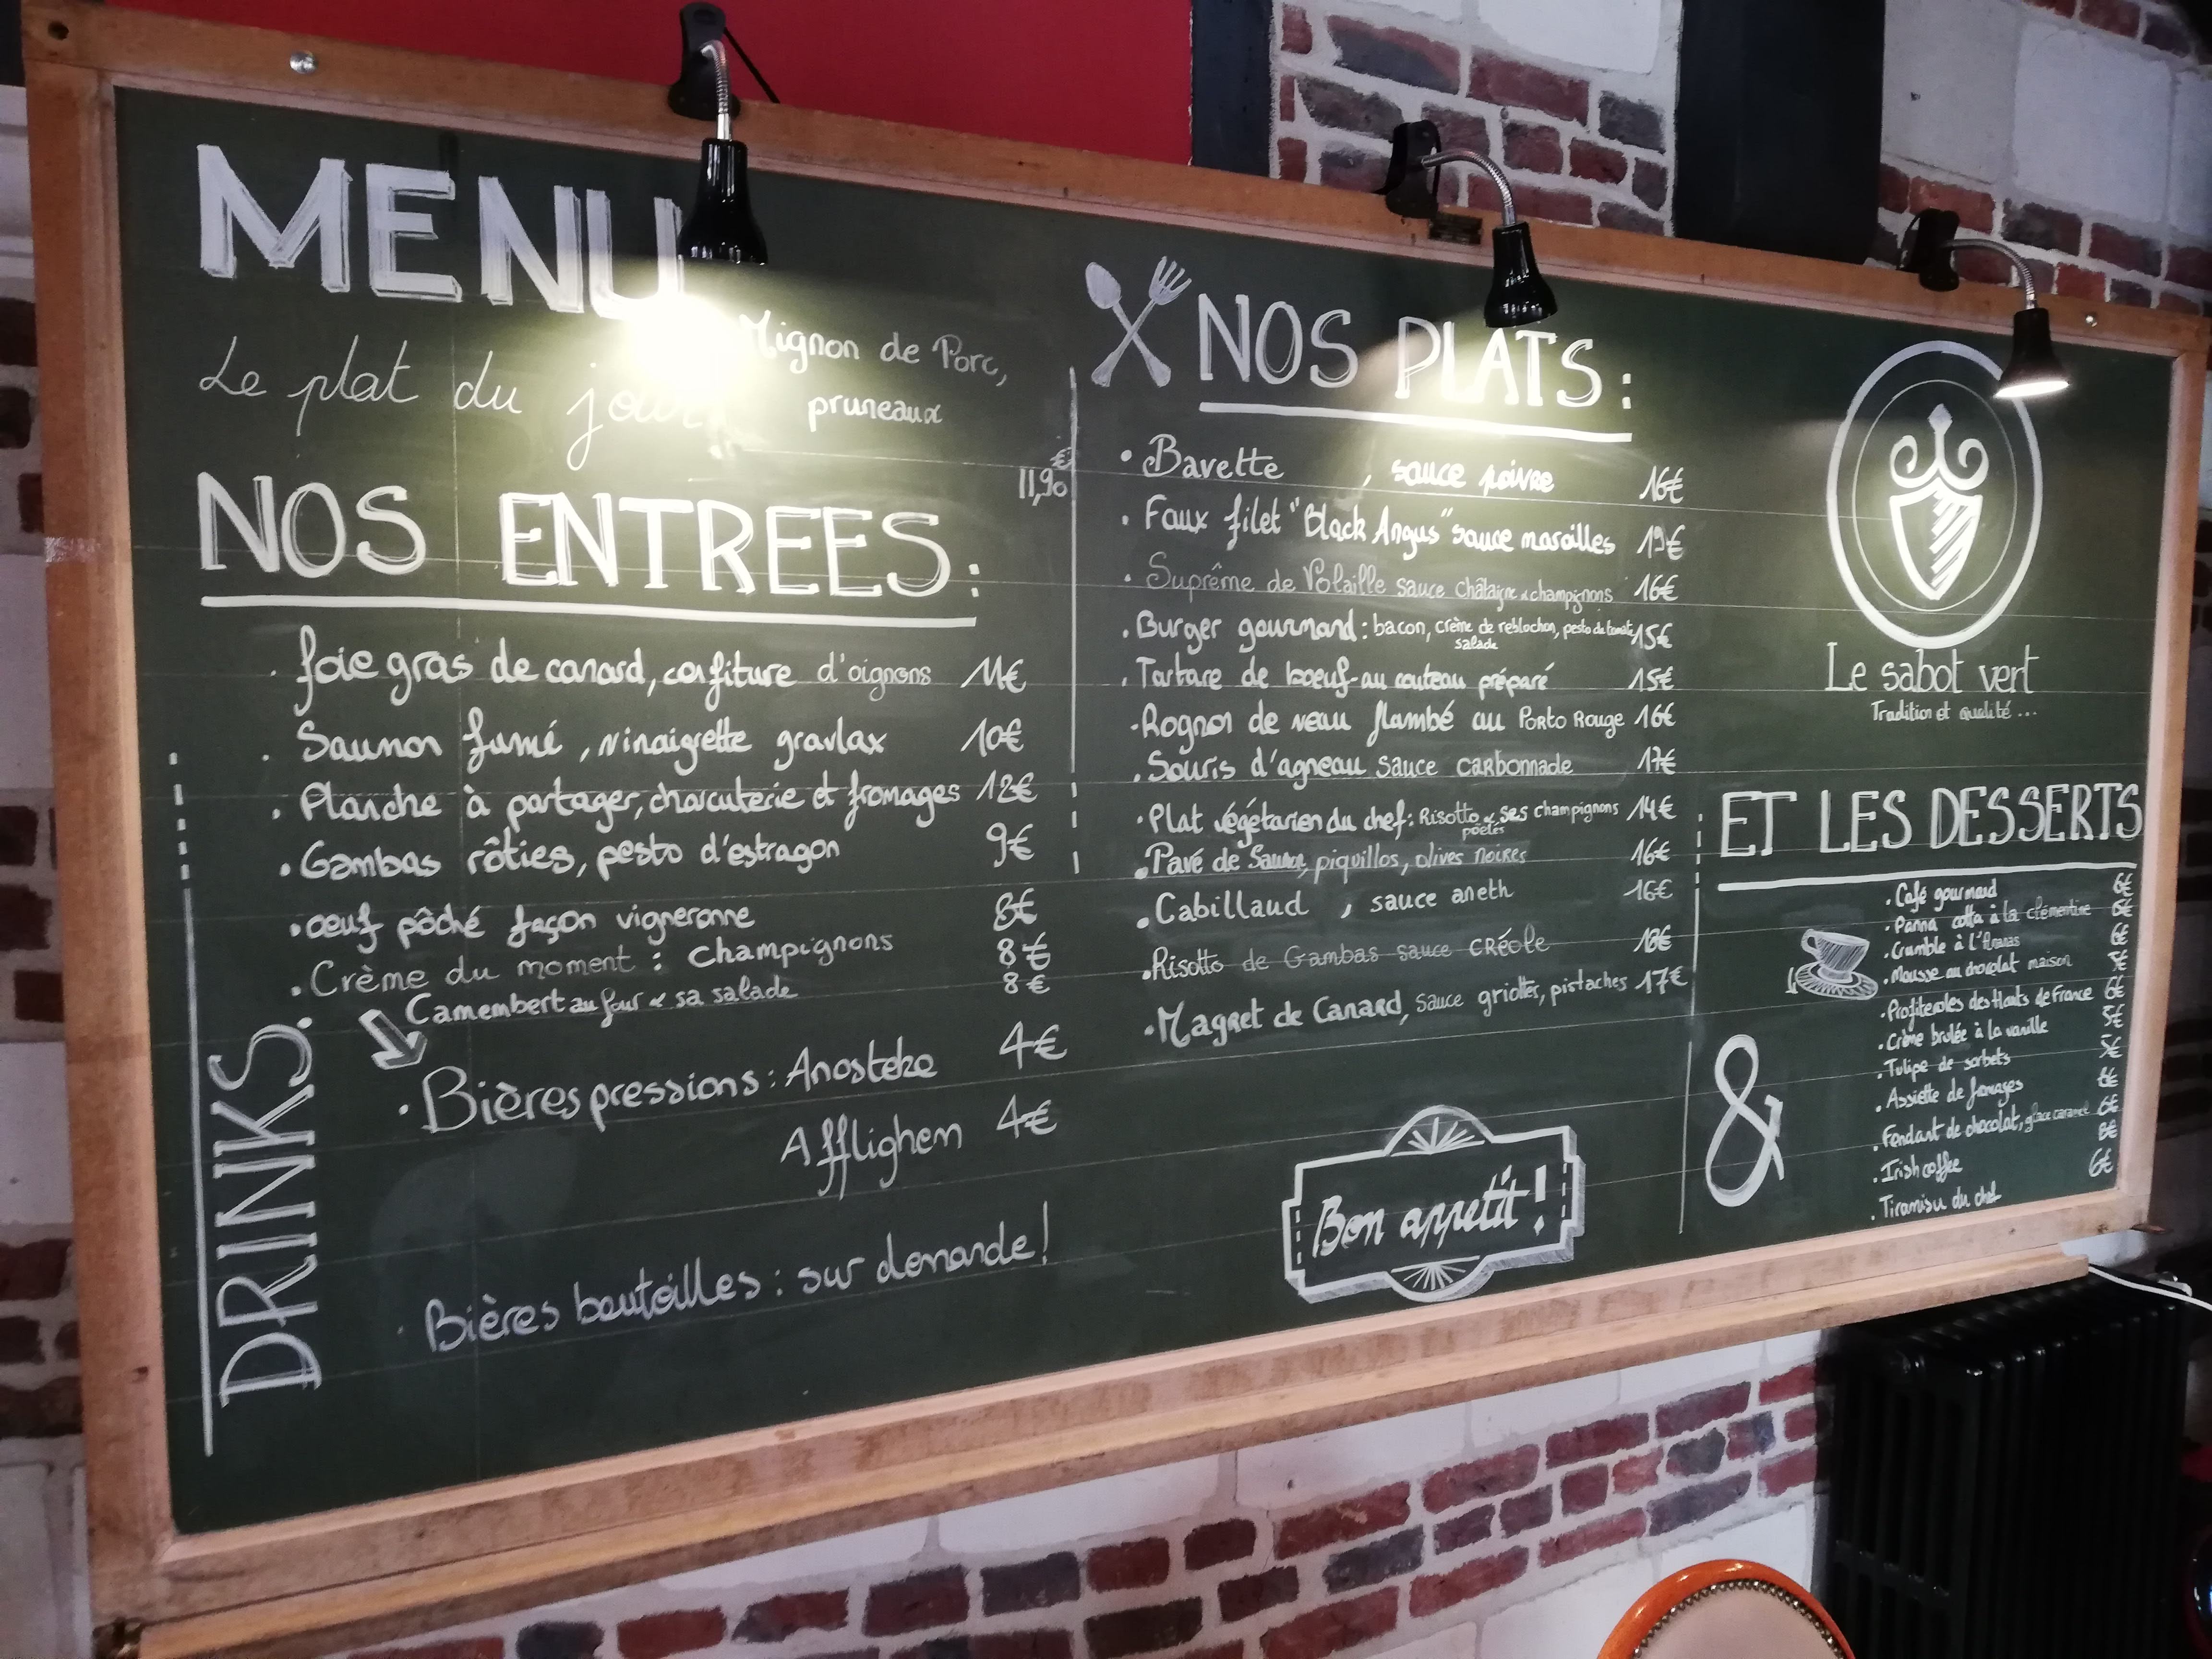 MENU
Le plat du jour
Mignon de Porc,
pruneaux
11,90€
NOS ENTREES :
. foie gras de canard, confiture d'oignons 11€
. Saumon fumé, vinaigrette gravlax 10€
. Planche à partager, charcuterie et fromages 12€
. Gambas rôties, pesto d'estragon 9€
. oeuf pôché façon vigneronne 8€
. Crème du moment : Champignons 8€
. Camembert au four & sa salade 8€
DRINKS
. Bières pressions : Anosteke 4€
Afflighem 4€
. Bières bouteilles : sur demande !
NOS PLATS :
. Bavette , sauce poivre 16€
. Faux filet "Black Angus" sauce maroilles 19€
. Suprême de Volaille sauce Châtaigne & champignons 16€
. Burger gourmand : bacon, crème de reblochon, pesto de tomate 15€
salade
. Tartare de boeuf-au couteau préparé 15€
. Rognon de veau flambé au Porto Rouge 16€
. Souris d'agneau sauce carbonnade 17€
. Plat végétarien du chef : Risotto & ses champignons 14€
poêlés
. Pavé de Saumon, piquillos, olives noires 16€
. Cabillaud , sauce aneth 16€
. Risotto de Gambas sauce CRéole 18€
. Magret de Canard, sauce griottes, pistaches 17€
Bon appetit !
Le sabot vert
Tradition et qualité ...
ET LES DESSERTS
&
. Café gourmand 6€
. Panna cotta à la clémentine 6€
. Crumble à l'Ananas 6€
. Mousse au chocolat maison 5€
. Profiteroles des Hauts de France 6€
. Crème brulée à la vanille 5€
. Tulipe de sorbets 5€
. Assiette de fromages 6€
. Fondant de chocolat, glace caramel 6€
. Irish coffee 8€
. Tiramisu du chef 6€